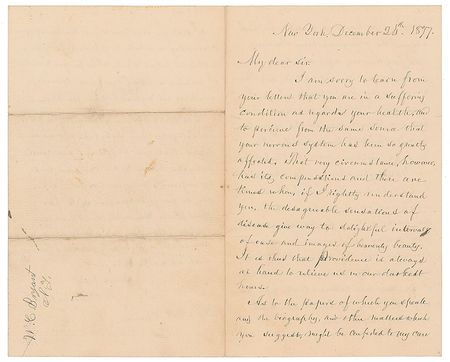 New York, December 28th. 1877.
My dear sir.
I am sorry to learn from
your letter that you are in a suffering
condition as regards your health, and
to perceive from the same source that
your nervous system has been so greatly
affected. That very circumstance, however,
has its compensations and there are
times when, if I rightly understand
you, the disagreeable sensations of
disease give way to delightful intervals
of ease and images of heavenly beauty.
It is thus that Providence is always
at hand to relieve us in our darkest
hours.
As to the papers of which you speak
and the biography, and other matters which
you suggest, might be confided to my care
W. C. Bryant
N.Y.